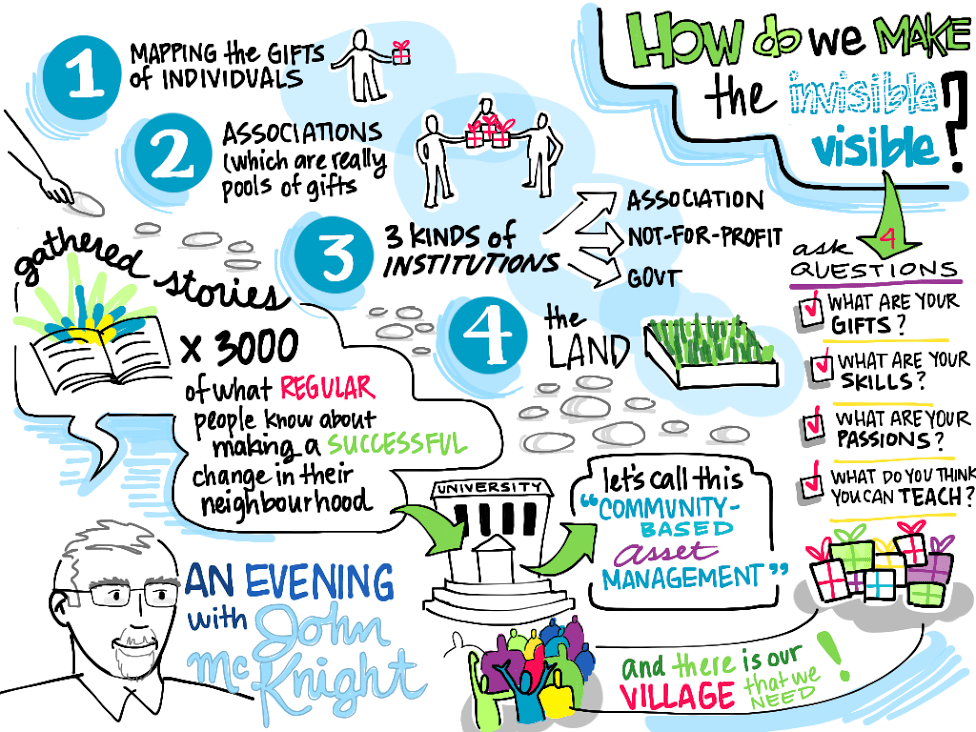 1
MAPPING the GIFTS
of INDIVIDUALS
2
ASSOCIATIONS
(which are really
pools of gifts
3
3 KINDS of
INSTITUTIONS
ASSOCIATION
NOT-FOR-PROFIT
GOVT
4
the
LAND
HOW do we MAKE
the invisible
visible?
ask 4
QUESTIONS
WHAT ARE YOUR
GIFTS?
WHAT ARE YOUR
SKILLS?
WHAT ARE YOUR
PASSIONS?
WHAT DO YOU THINK
YOU CAN TEACH?
gathered stories
x 3000
of what REGULAR
people know about
making a SUCCESSFUL
change in their
neighbourhood
UNIVERSITY
let's call this
"COMMUNITY-
BASED
asset
MANAGEMENT"
AN EVENING
with John
McKnight
and there is our
VILLAGE that we
NEED!